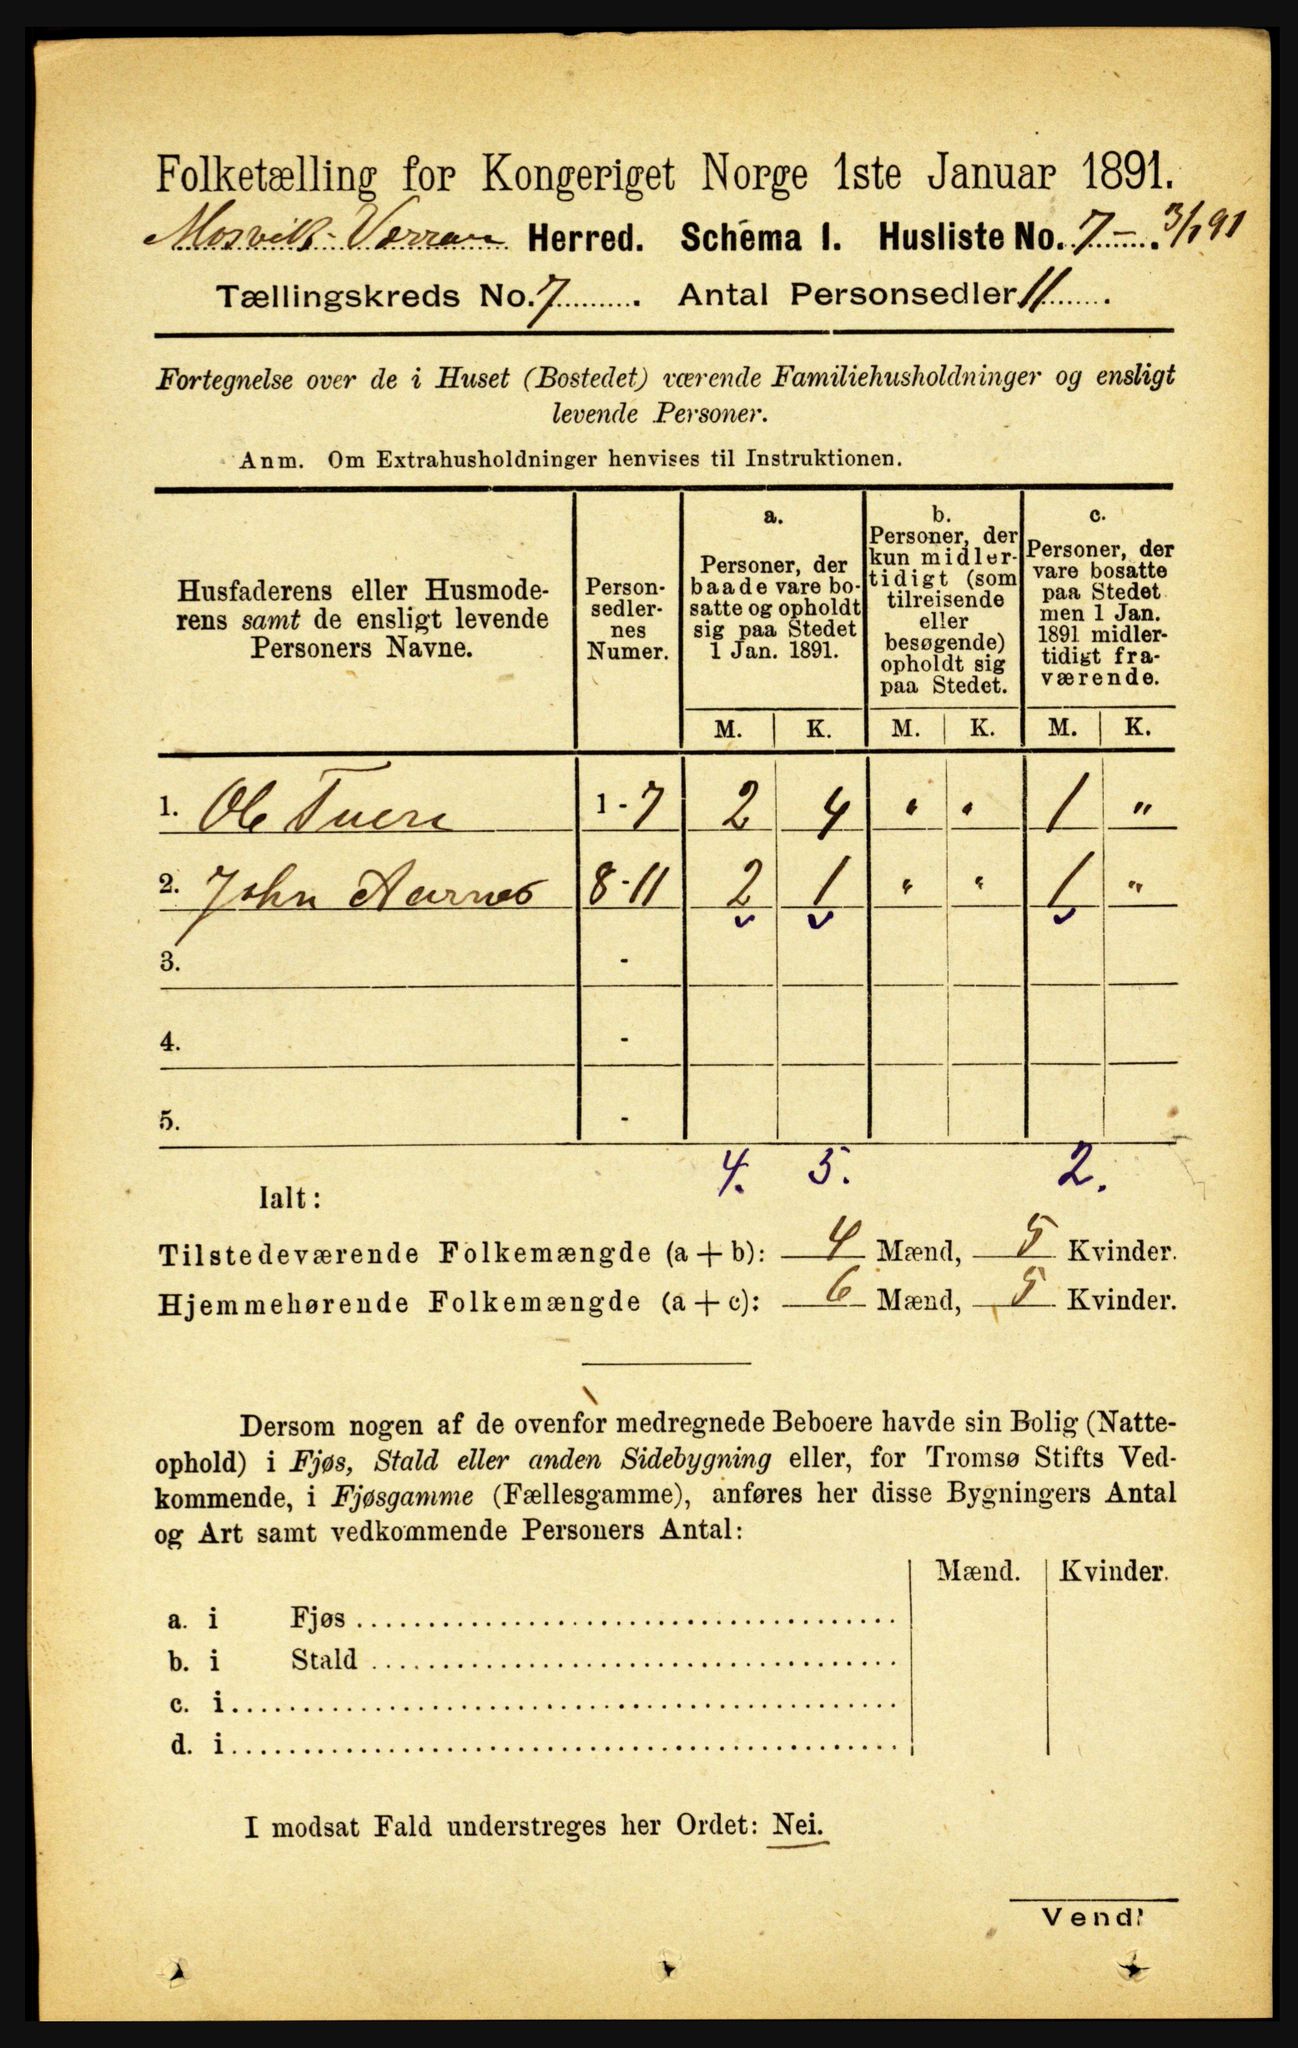 Folketælling for Kongeriget Norge 1ste Januar 1891.
Mosvik-Verran Herred. Schema I. Husliste No. 7 - 3/1 91
Tællingskreds No. 7. Antal Personsedler 11.
Fortegnelse over de i Huset (Bostedet) værende Familiehusholdninger og ensligt
levende Personer.
Anm. Om Extrahusholdninger henvises til Instruktionen.
Husfaderens eller Husmode-
rens samt de ensligt levende
Personers Navne.
Person-
sedler-
nes
Numer.
a.
Personer, der
baade vare bo-
satte og opholdt
sig paa Stedet
1 Jan. 1891.
b.
Personer, der
kun midler-
tidigt (som
tilreisende
eller
besøgende)
opholdt sig
paa Stedet.
c.
Personer, der
vare bosatte
paa Stedet
men 1 Jan.
1891 midler-
tidigt fra-
værende.
M. K. M. K. M. K.
1. Ole 1 - 7 2 4 " " 1 "
2. John Aarnes 8 - 11 2 1 " " 1 "
3. -
4. -
5. -
4. 5. 2.
Ialt:
Tilstedeværende Folkemængde (a + b): 4 Mænd, 5 Kvinder.
Hjemmehørende Folkemængde (a + c): 6 Mænd, 5 Kvinder.
Dersom nogen af de ovenfor medregnede Beboere havde sin Bolig (Natte-
ophold) i Fjøs, Stald eller anden Sidebygning eller, for Tromsø Stifts Ved-
kommende, i Fjøsgamme (Fællesgamme), anføres her disse Bygningers Antal
og Art samt vedkommende Personers Antal:
Mænd. Kvinder.
a. i Fjøs
b. i Stald
c. i
d. i
I modsat Fald understreges her Ordet: Nei.
Vend!